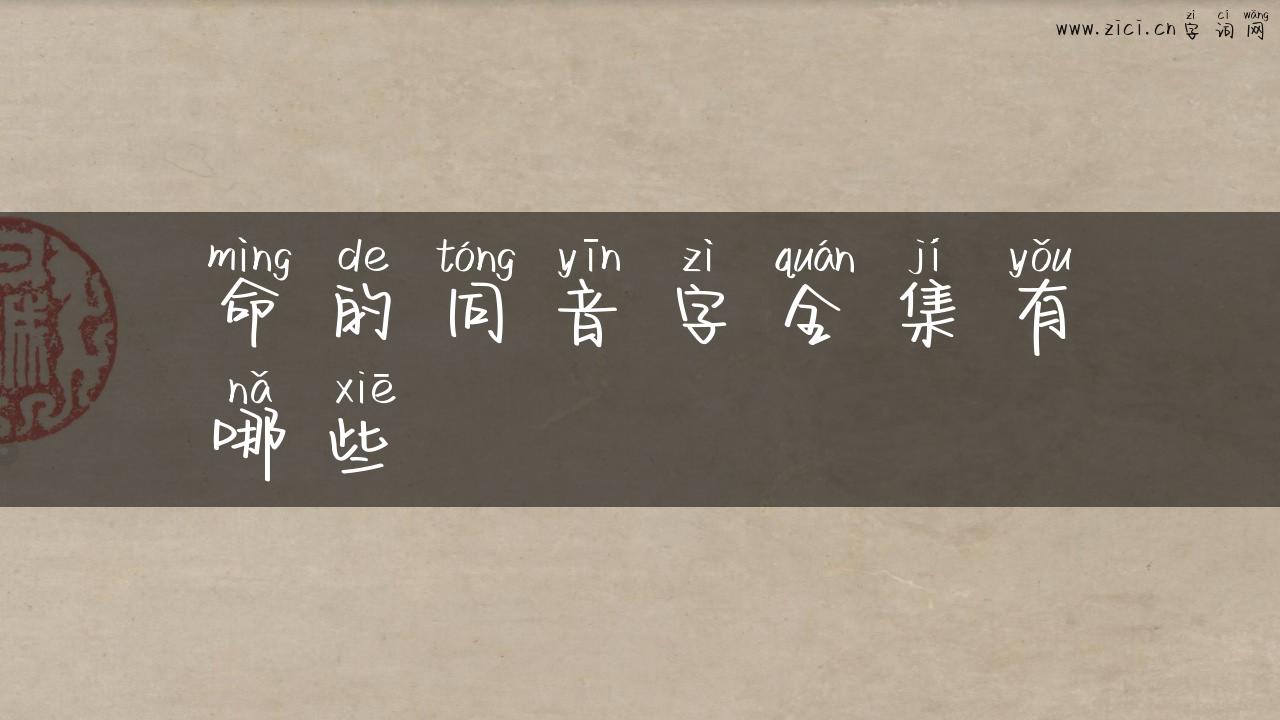 zì cí wǎng
www.zici.cn 字词网
mìng de tóng yīn zì quán jí yǒu
命的同音字全集有
nǎ xiē
哪些